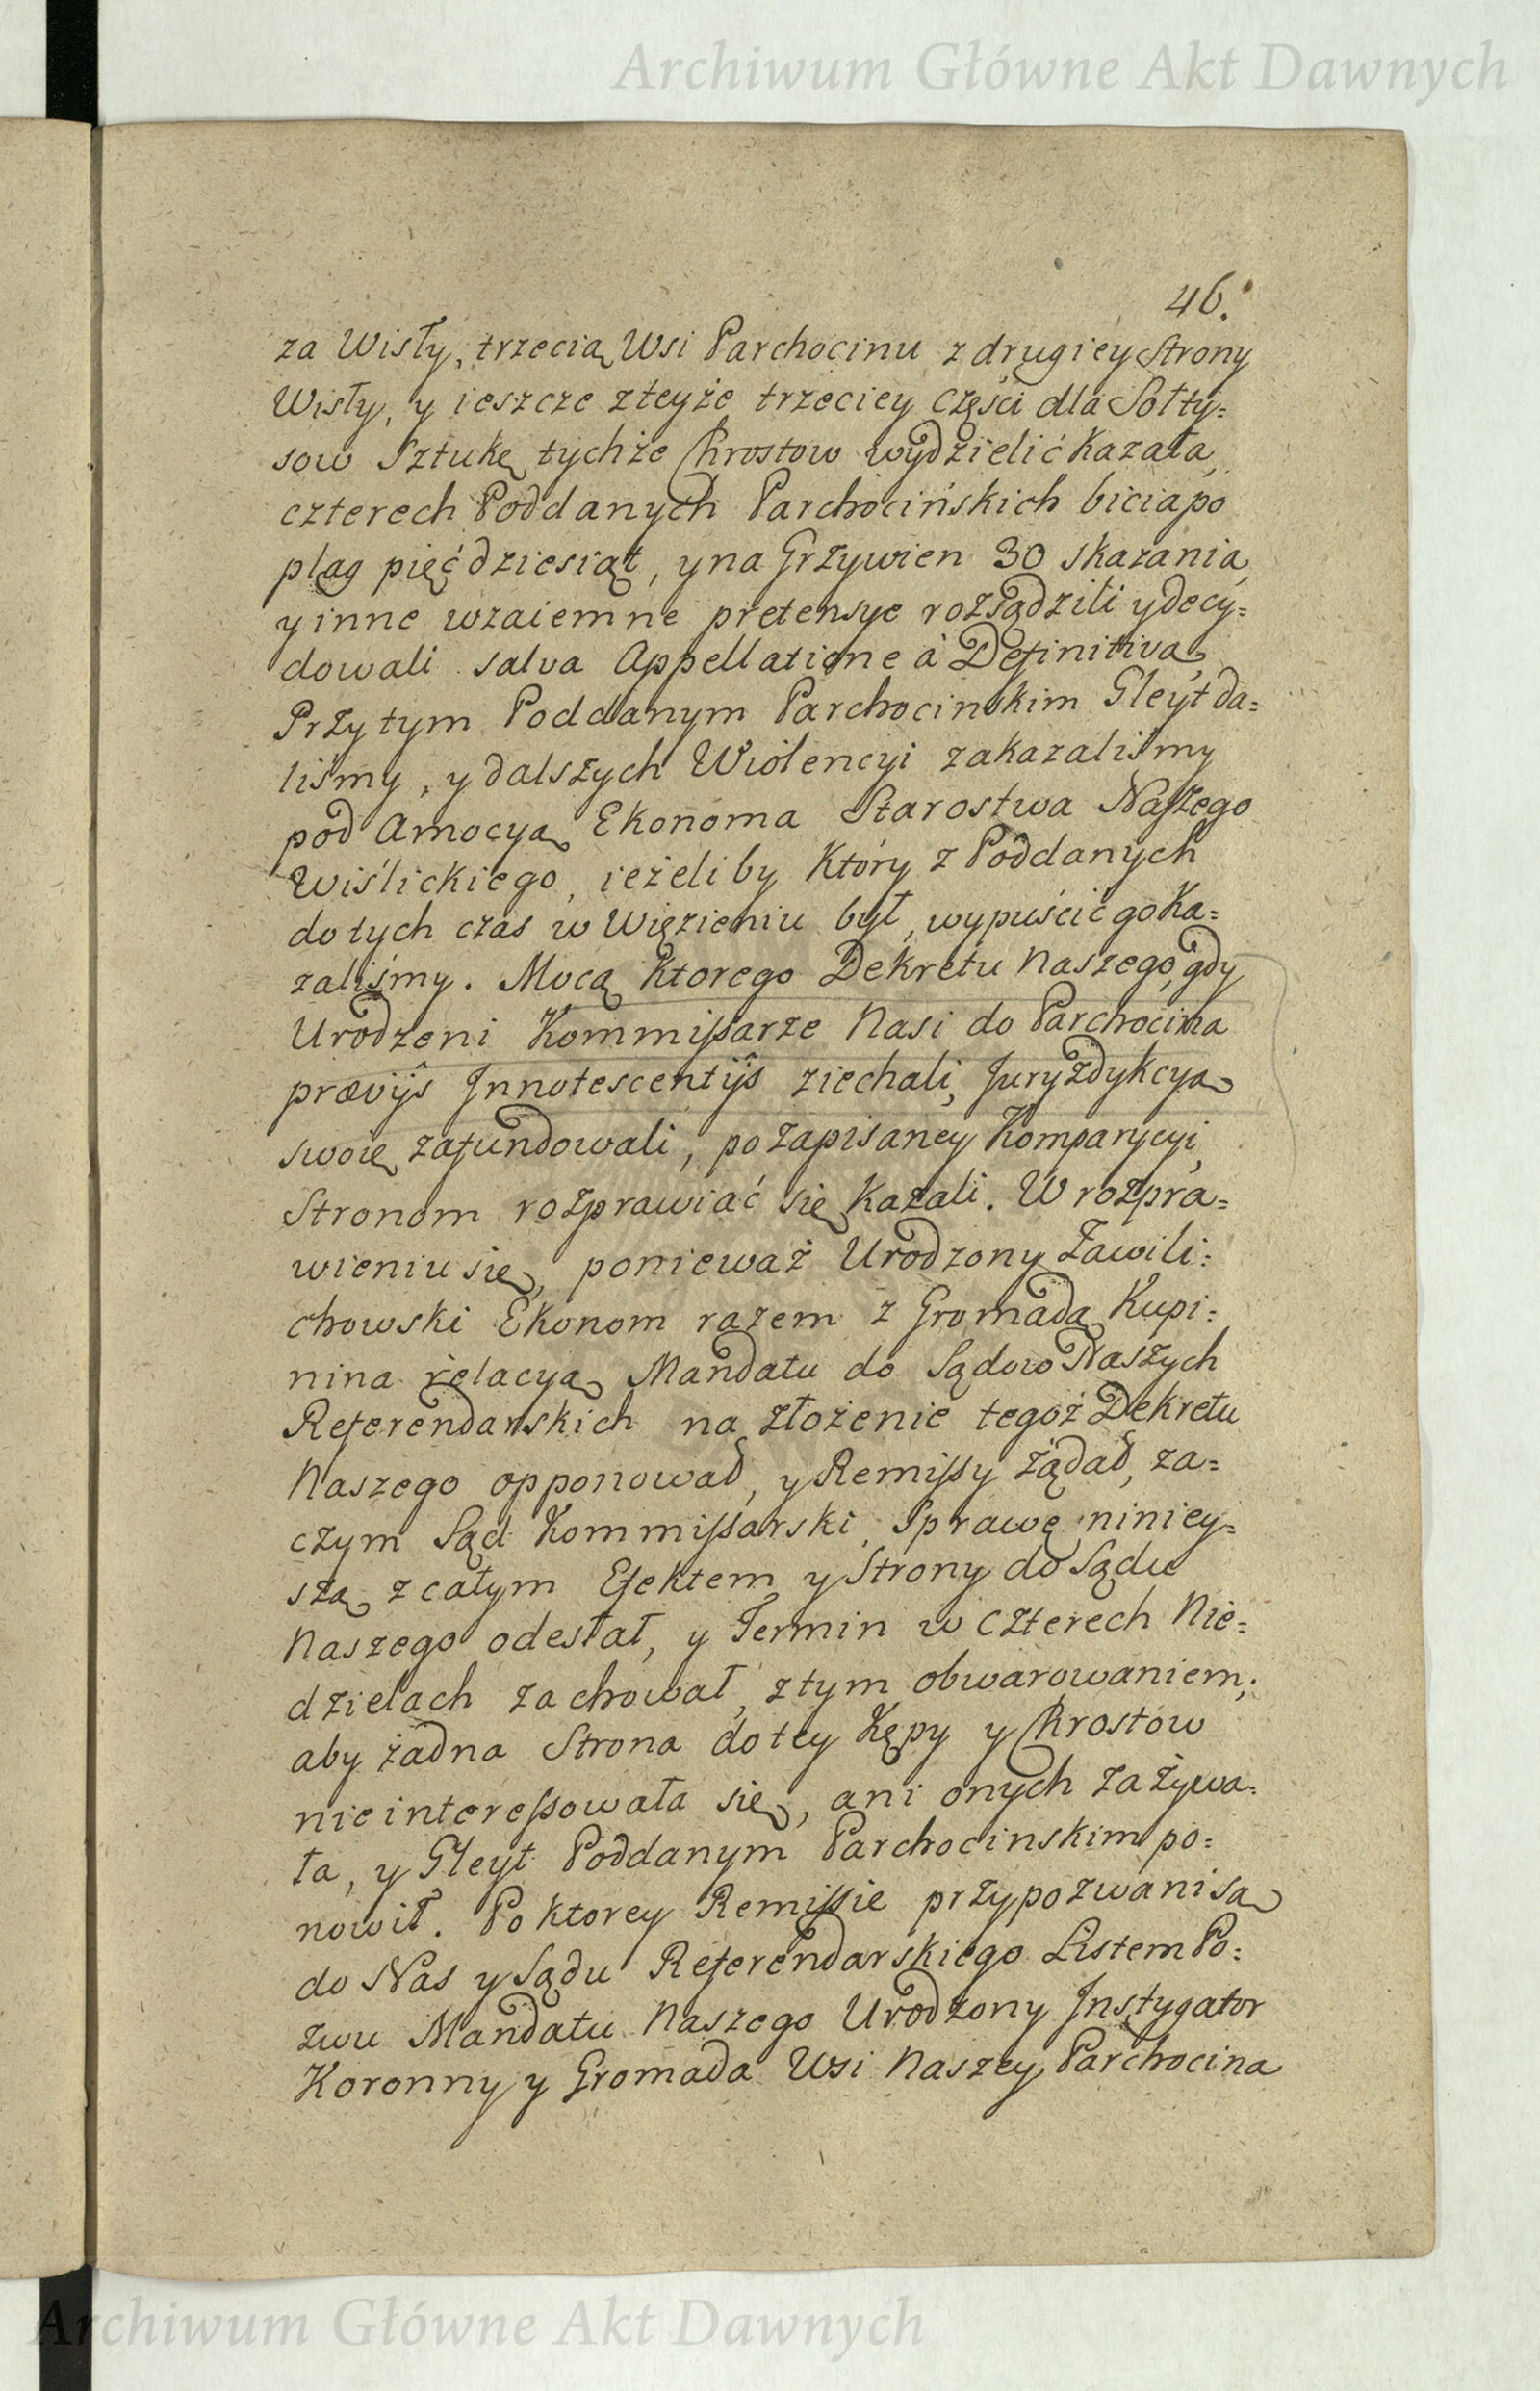 Archiwum Główne Akt Dawnych
46.
za Wisły, trzecią Wsi Parchocinu z drugiey Strony
Wisły, y ieszcze z teyże trzeciey części dla Sołty=
sow Sztukę tychże Chrostow wydzielić kazała,
czterech Poddanych Parchocińskich bicia po
plag pięćdziesiąt, y na Grzywien 30 skazania,
y inne wzaiemne pretensye rozsądzili y decy=
dowali salva Appellatione à Definitiva,
Przytym Poddanym Parchocinskim Gleyt da=
liśmy, y dalszych Wiolencyi zakazaliśmy
pod Amocyą Ekonoma Starostwa Naszego
Wiślickiego, ieżeliby Który z Poddanych
do tych czas w Więzieniu był, wypuścić go Ka=
zaliśmy. Mocą Ktorego Dekretu Naszego, gdy
Urodzeni Kommißarze Nasi do Parchocina
prævijs Innotescentijs ziechali, Juryzdykcyą
swoię zafundowali, po zapisaney Komparycyi,
Stronom rozprawiać się Kazali. W rozpra=
wieniu się, ponieważ Urodzony Zawili=
chowski Ekonom razem z Gromadą Kupi=
nina relacyą Mandatu do Sądow Naszych
Referendarskich na złożenie tegoż Dekretu
Naszego opponował, y Remißy żądał, za=
czym Sąd Kommißarski, Sprawę niniey=
szą z całym Efektem y Strony do Sądu
Naszego odesłał, y Termin w Czterech Nie=
dzielach zachował, z tym obwarowaniem;
aby żadna Strona do tey Kępy y Chrostow
nie intereßowała się, ani onych zażywa=
ła, y Gleyt Poddanym Parchocinskim po=
nowił. Po ktorey Remißie przypozwani są
do Nas y Sądu Referendarskiego Listem Po=
zwu Mandatu Naszego Urodzony Instygator
Koronny y Gromada Wsi Naszey Parchocina
Archiwum Główne Akt Dawnych